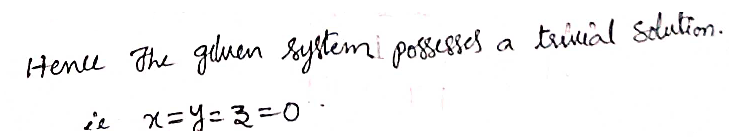 Hence The given system possesses a trivial solution.
ie x=y=z=0.